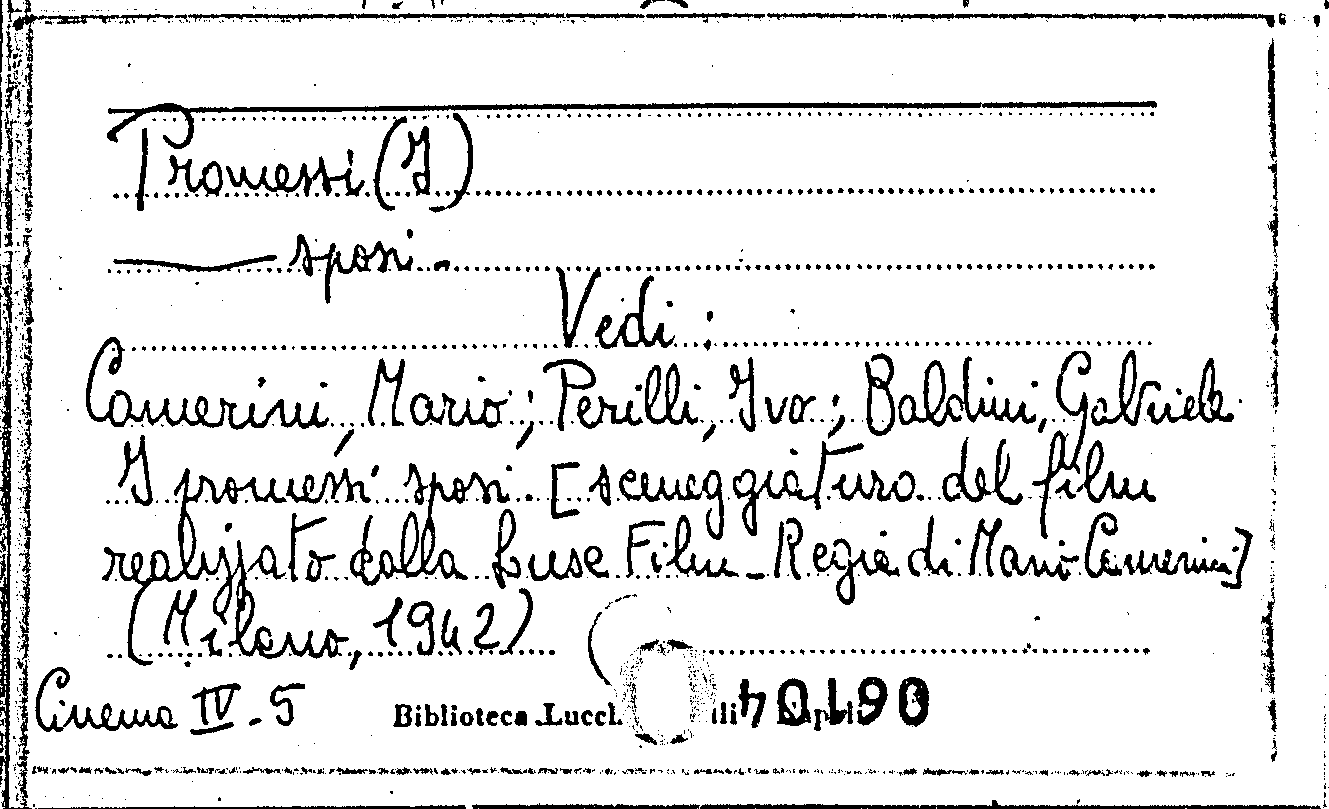 Promessi (I)
—— sposi.
Vedi:
Camerini, Mario; Perilli, Ivo; Baldini, Gabriele
I promessi sposi. [sceneggiatura del film
realizzato dalla Luse Film - Regia di Mario Camerini]
(Milano, 1942)
Cinema IV-5
Biblioteca
06104